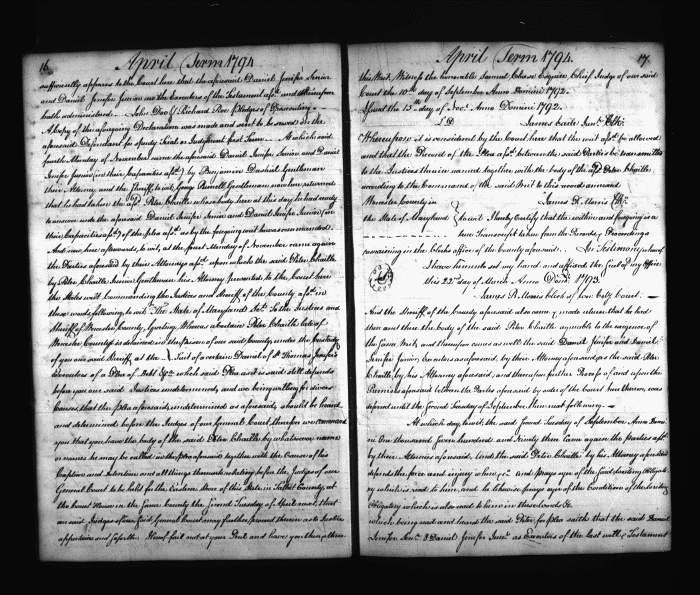 16
April Term 1794
sufficiently appears to the Court here that the aforesaid Daniel Jenifer Senior
and Daniel Jenifer Junior are the Executors of the Testament afsd. and
hath administred. John Doe & Richard Roe Pledges of Prosecuting.
A Copy of the aforegoing Declaration was made and sent to be served on the
aforesaid Defendant for speedy Trial or Judgment first Term. At which said
fourth Monday of November came the aforesaid Daniel Jenifer Senior and Daniel
Jenifer Junior (in their Capacities afsd.) by Benjamin Dashiel Gentleman
their Attorney and the Sheriff, to wit, George Purnell Gentleman now here returned
that he had taken the afsd. Peter Chaille whose body here at this day he had ready
to answer unto the aforesaid Daniel Jenifer Senior and Daniel Jenifer Junior (in
their Capacities afsd.) of the plea afsd. as by the foregoing writ he was commanded.
And now here afterwards, to wit, at the first Monday of November came again
the Parties aforesaid by their Attorneys afsd. upon which the said Peter Chaille
by Peter Chaille Junior Gentleman his Attorney presented to the Court here
the States writ Commanding the Justices and Sheriff of the County afsd. in
these words following to wit. The State of Maryland &c. To the Justices and
Sheriff of Worcester County, Greeting, Whereas a certain Peter Chaille late of
Worcester County is detained in the Prison of our said County under the Custody
of you our said Sheriff, at the Suit of a certain Daniel of St. Thomas Jenifer's
Executors of a Plea of Debt &c. which said Plea as it is said still depends
before you our said Justices undetermined, and we being willing for divers
Causes, that the plea aforesaid, undetermined as aforesaid, should be heard
and determined before the Judges of our General Court, therefore we command
you that you have the body of the said Peter Chaille by whatsoever name
or names he may be called in the plea aforesaid together with the Cause of his
Caption and Detention and all things thereunto relating before the Judges of our
General Court to be held for the Eastern Shore of this State in Talbot County, at
the Court House in the same County the second Tuesday of April next, that
our said Judges of our said General Court may further proceed therein as to Justice
appertains and so forth. Hereof fail not at your Peril and have you then & there
17.
April Term 1794.
this Writ. Witness the honorable Samuel Chase Esquire, Chief Judge of our said
Court the 10th. day of September Anno Domini 1792.
Issued the 15th. day of Anno Domini 1792.
James Earle Junr. Clk.
Whereupon it is considered by the Court here that the writ afsd. be allowed
and that the Record of the Plea afsd. between the said Parties be transmitted
to the Justices therein named together with the body of the afsd. Peter Chaille
according to the Command of the said Writ to this word command
Worcester County in James R. Morris Clk.
the State of Maryland to wit I hereby Certify that the within and foregoing is a
true Transcript taken from the Records & Proceedings
remaining in the Clerks office of the County aforesaid. In Testimony whereof
I have hereunto set my hand and affixed the Seal of my Office
this 22d. day of March Anno Domi. 1793.
James R. Morris Clerk of Wor. Coty. Court.
And the Sheriff of the County aforesaid also came & made return that he had
then and there the body of the said Peter Chaille agreeable to the exigence of
the same Writ, and thereupon comes as well the said Daniel Jenifer and Daniel
Jenifer Junior, Executors as aforesaid, by their Attorney aforesaid, as the said Peter
Chaille, by his Attorney aforesaid, and thereupon further Process of and upon the
Premises aforesaid between the Parties aforesaid by order of the Court here thereon, was
respited until the second Tuesday of September then next following.
At which day to wit, the said second Tuesday of September Anno Domi
ni One thousand seven hundred and ninety three Came again the parties afsd.
by their Attornies aforesaid, And the said Peter Chaille by his Attorney aforesaid
defends the force and injury when &c. and prays oyer of the said Writing Obligato
ry which is read to him, and he likewise prays oyer of the Condition of the writing
Obligatory which is also read to him in these words &c.
which being read and heard the said Peter for plea saith that the said Daniel
Jenifer Senr. & Daniel Jenifer Junr. as Executors of the last will & Testament